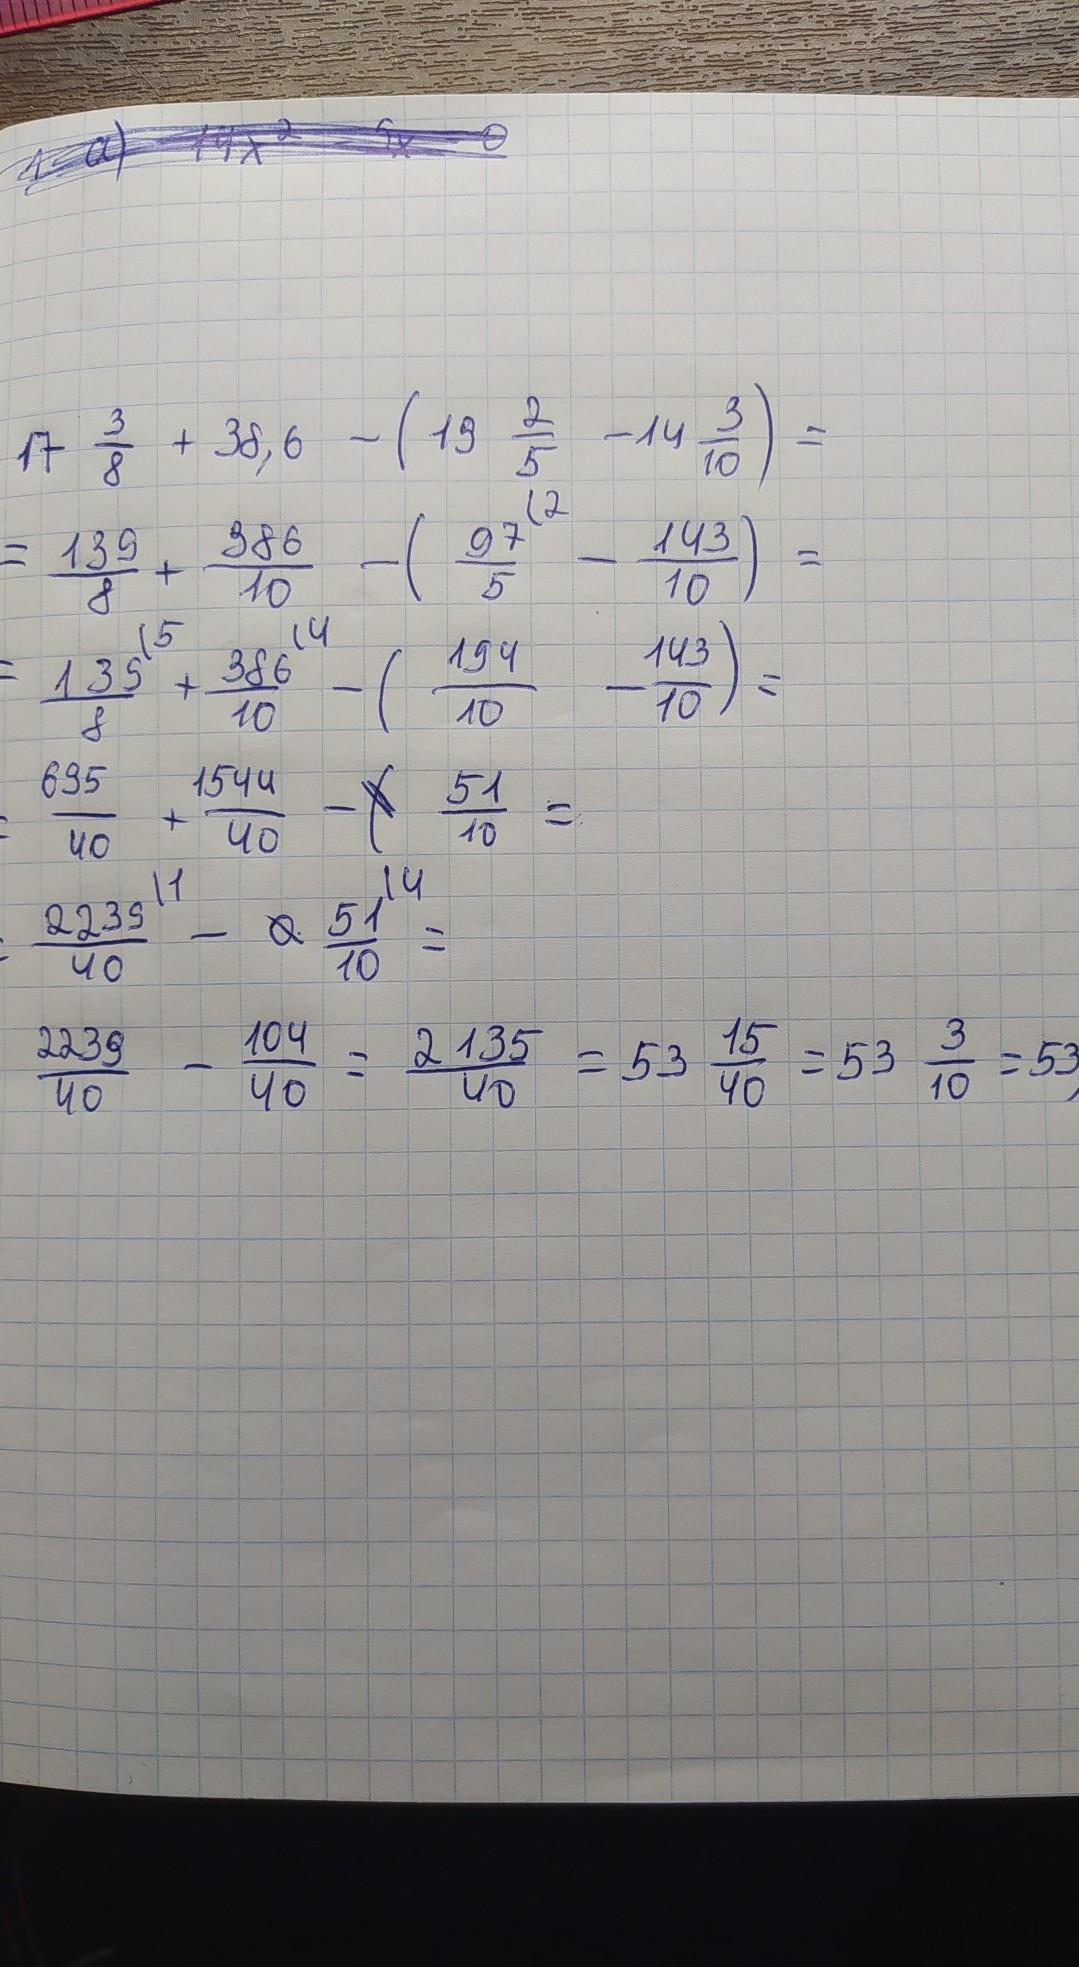 1 a) 14x² - 5x = 0
17 3/8 + 38,6 - (19 2/5 - 14 3/10) =
= 139/8 + 386/10 - (97/5 \2 - 143/10) =
= 139/8 \5 + 386/10 \4 - (194/10 - 143/10) =
= 695/40 + 1544/40 - 51/10 =
= 2239/40 \1 - 51/10 \4 =
2239/40 - 104/40 = 2135/40 = 53 15/40 = 53 3/10 = 53,